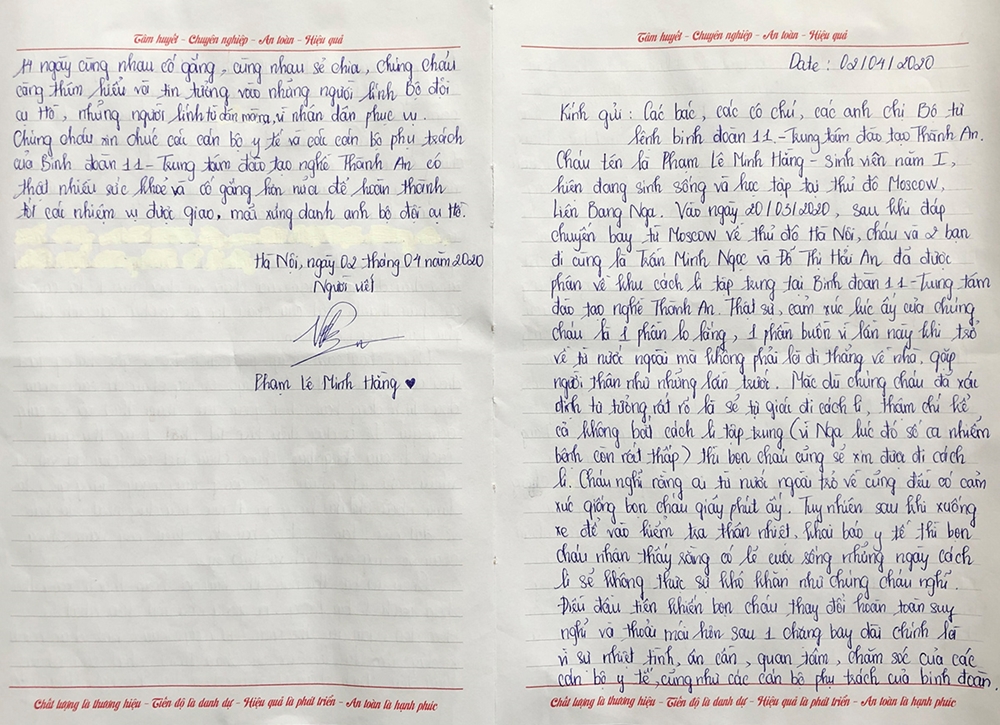 Tâm huyết - Chuyên nghiệp - An toàn - Hiệu quả
14 ngày cùng nhau cố gắng, cùng nhau sẻ chia, chúng cháu
càng thấm hiểu và tin tưởng vào những người lính Bộ đội
cụ Hồ, những người lính từ dân mà ra, vì nhân dân phục vụ.
Chúng cháu xin chúc các cán bộ y tế và các cán bộ phụ trách
của Binh đoàn 11 - Trung tâm đào tạo nghề Thành An có
thật nhiều sức khoẻ và cố gắng hơn nữa để hoàn thành
tốt các nhiệm vụ được giao, mãi xứng danh anh bộ đội cụ Hồ.
Hà Nội, ngày 02 tháng 04 năm 2020
Người viết
Phạm Lê Minh Hằng ♥
Chất lượng là thương hiệu - Tiến độ là danh dự - Hiệu quả là phát triển - An toàn là hạnh phúc
Tâm huyết - Chuyên nghiệp - An toàn - Hiệu quả
Date : 02/04/2020
Kính gửi : Các bác, các cô chú, các anh chị Bộ tư
lệnh binh đoàn 11 - Trung tâm đào tạo Thành An.
Cháu tên là Phạm Lê Minh Hằng - sinh viên năm I,
hiện đang sinh sống và học tập tại thủ đô Moscow,
Liên Bang Nga. Vào ngày 20/03/2020, sau khi đáp
chuyến bay từ Moscow về thủ đô Hà Nội, cháu và 2 bạn
đi cùng là Trần Minh Ngọc và Đỗ Thị Hải An đã được
phân về khu cách li tập trung tại Binh đoàn 11 - Trung tâm
đào tạo nghề Thành An. Thật sự, cảm xúc lúc ấy của chúng
cháu là 1 phần lo lắng, 1 phần buồn vì lần này khi trở
về từ nước ngoài mà không phải là đi thẳng về nhà, gặp
người thân như những lần trước. Mặc dù chúng cháu đã xác
định tư tưởng rất rõ là sẽ tự giác đi cách li, thậm chí kể
cả không bắt cách li tập trung (vì Nga lúc đó số ca nhiễm
bệnh còn rất thấp) thì bọn cháu cũng sẽ xin được đi cách
li. Cháu nghĩ rằng ai từ nước ngoài trở về cũng đều có cảm
xúc giống bọn cháu giây phút ấy. Tuy nhiên sau khi xuống
xe để vào kiểm tra thân nhiệt, khai báo y tế thì bọn
cháu nhận thấy rằng có lẽ cuộc sống những ngày cách
li sẽ không thực sự khó khăn như chúng cháu nghĩ.
Điều đầu tiên khiến bọn cháu thay đổi hoàn toàn suy
nghĩ và thoải mái hơn sau 1 chặng bay dài chính là
vì sự nhiệt tình, ân cần, quan tâm, chăm sóc của các
cán bộ y tế, cũng như các cán bộ phụ trách của binh đoàn.
Chất lượng là thương hiệu - Tiến độ là danh dự - Hiệu quả là phát triển - An toàn là hạnh phúc